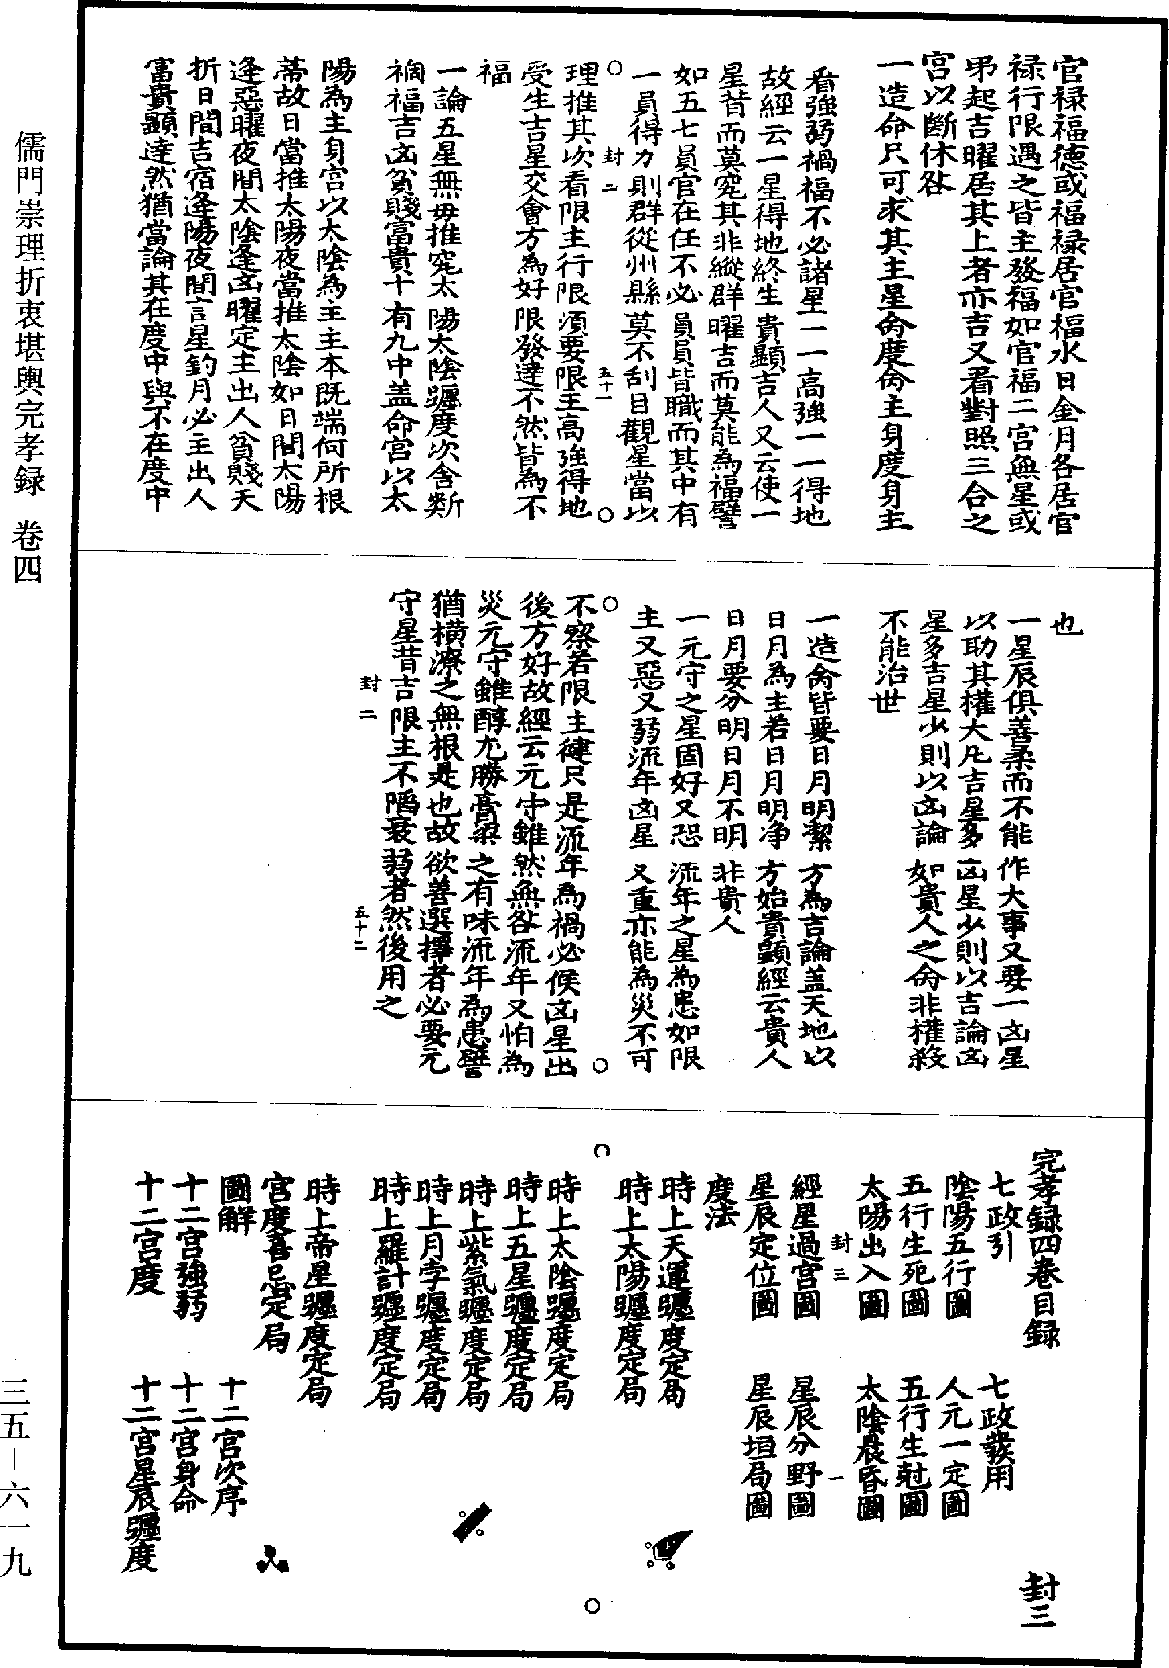 官祿福德或福祿居官福水日金月各居官
祿行限遇之皆主發福如官福二宮無星或
弔起吉曜居其上者亦吉又看對照三合之
宮以斷休咎
一造命只可求其主星命度命主身度身主
看強弱禍福不必諸星一一高強一一得地
故經云一星得地終生貴顯吉人又云使一
星昔而莫究其非縱群曜吉而莫能為福譬
如五七員官在任不必員員皆職而其中有
一員得力則群從州縣莫不刮目觀星當以
封二
五十一
理推其次看限主行限須要限主高強得地
受生吉星交會方為好限發達不然皆為不
福
一論五星無毋推究太陽太陰躔度次含斷
禍福吉凶貧賤富貴十有九中盖命宮以太
陽為主身宮以太陰為主主本既端何所根
蒂故日當推太陽夜當推太陰如日間太陽
逢惡曜夜間太陰逢凶曜定主出人貧賤夭
折日間吉宿逢陽夜間言星釣月必主出人
富貴顯達然猶當論其在度中與不在度中
也
一星辰俱善柔而不能作大事又要一凶星
以助其權大凡吉星多凶星少則以吉論凶
星多吉星少則以凶論如貴人之命非權殺
不能治世
一造命皆要日月明潔方為吉論盖天地以
日月為主若日月明净方始貴顯經云貴人
日月要分明日月不明非貴人
一元守之星固好又恐流年之星為患如限
主又惡又弱流年凶星又重亦能為災不可
不察若限主健只是流年為禍必候凶星出
後方好故經云元守雖然無咎流年又怕為
災元守雖醇尤勝膏粱之有味流年為患譬
猶橫潦之無根是也故欲善選擇者必要元
守星昔吉限主不陷衰弱者然後用之
封二
五十二
完孝録四卷目録
封三
七政引
七政發用
陰陽五行圖
人元一定圖
五行生死圖
五行生尅圖
太陽出入圖
太陰晨昏圖
封三
一
經星過宮圖
星辰分野圖
星辰定位圖
星辰垣局圖
度法
時上天運躔度定局
時上太陽躔度定局
時上太陰躔度定局
時上五星躔度定局
時上紫氣躔度定局
時上月孛躔度定局
時上羅計躔度定局
時上帝星躔度定局
宮度喜忌定局
圖解
十二宮次序
十二宮強弱
十二宮身命
十二宮度
十二宮星辰躔度
儒門崇理折衷堪輿完孝録 卷四
三五－六一九